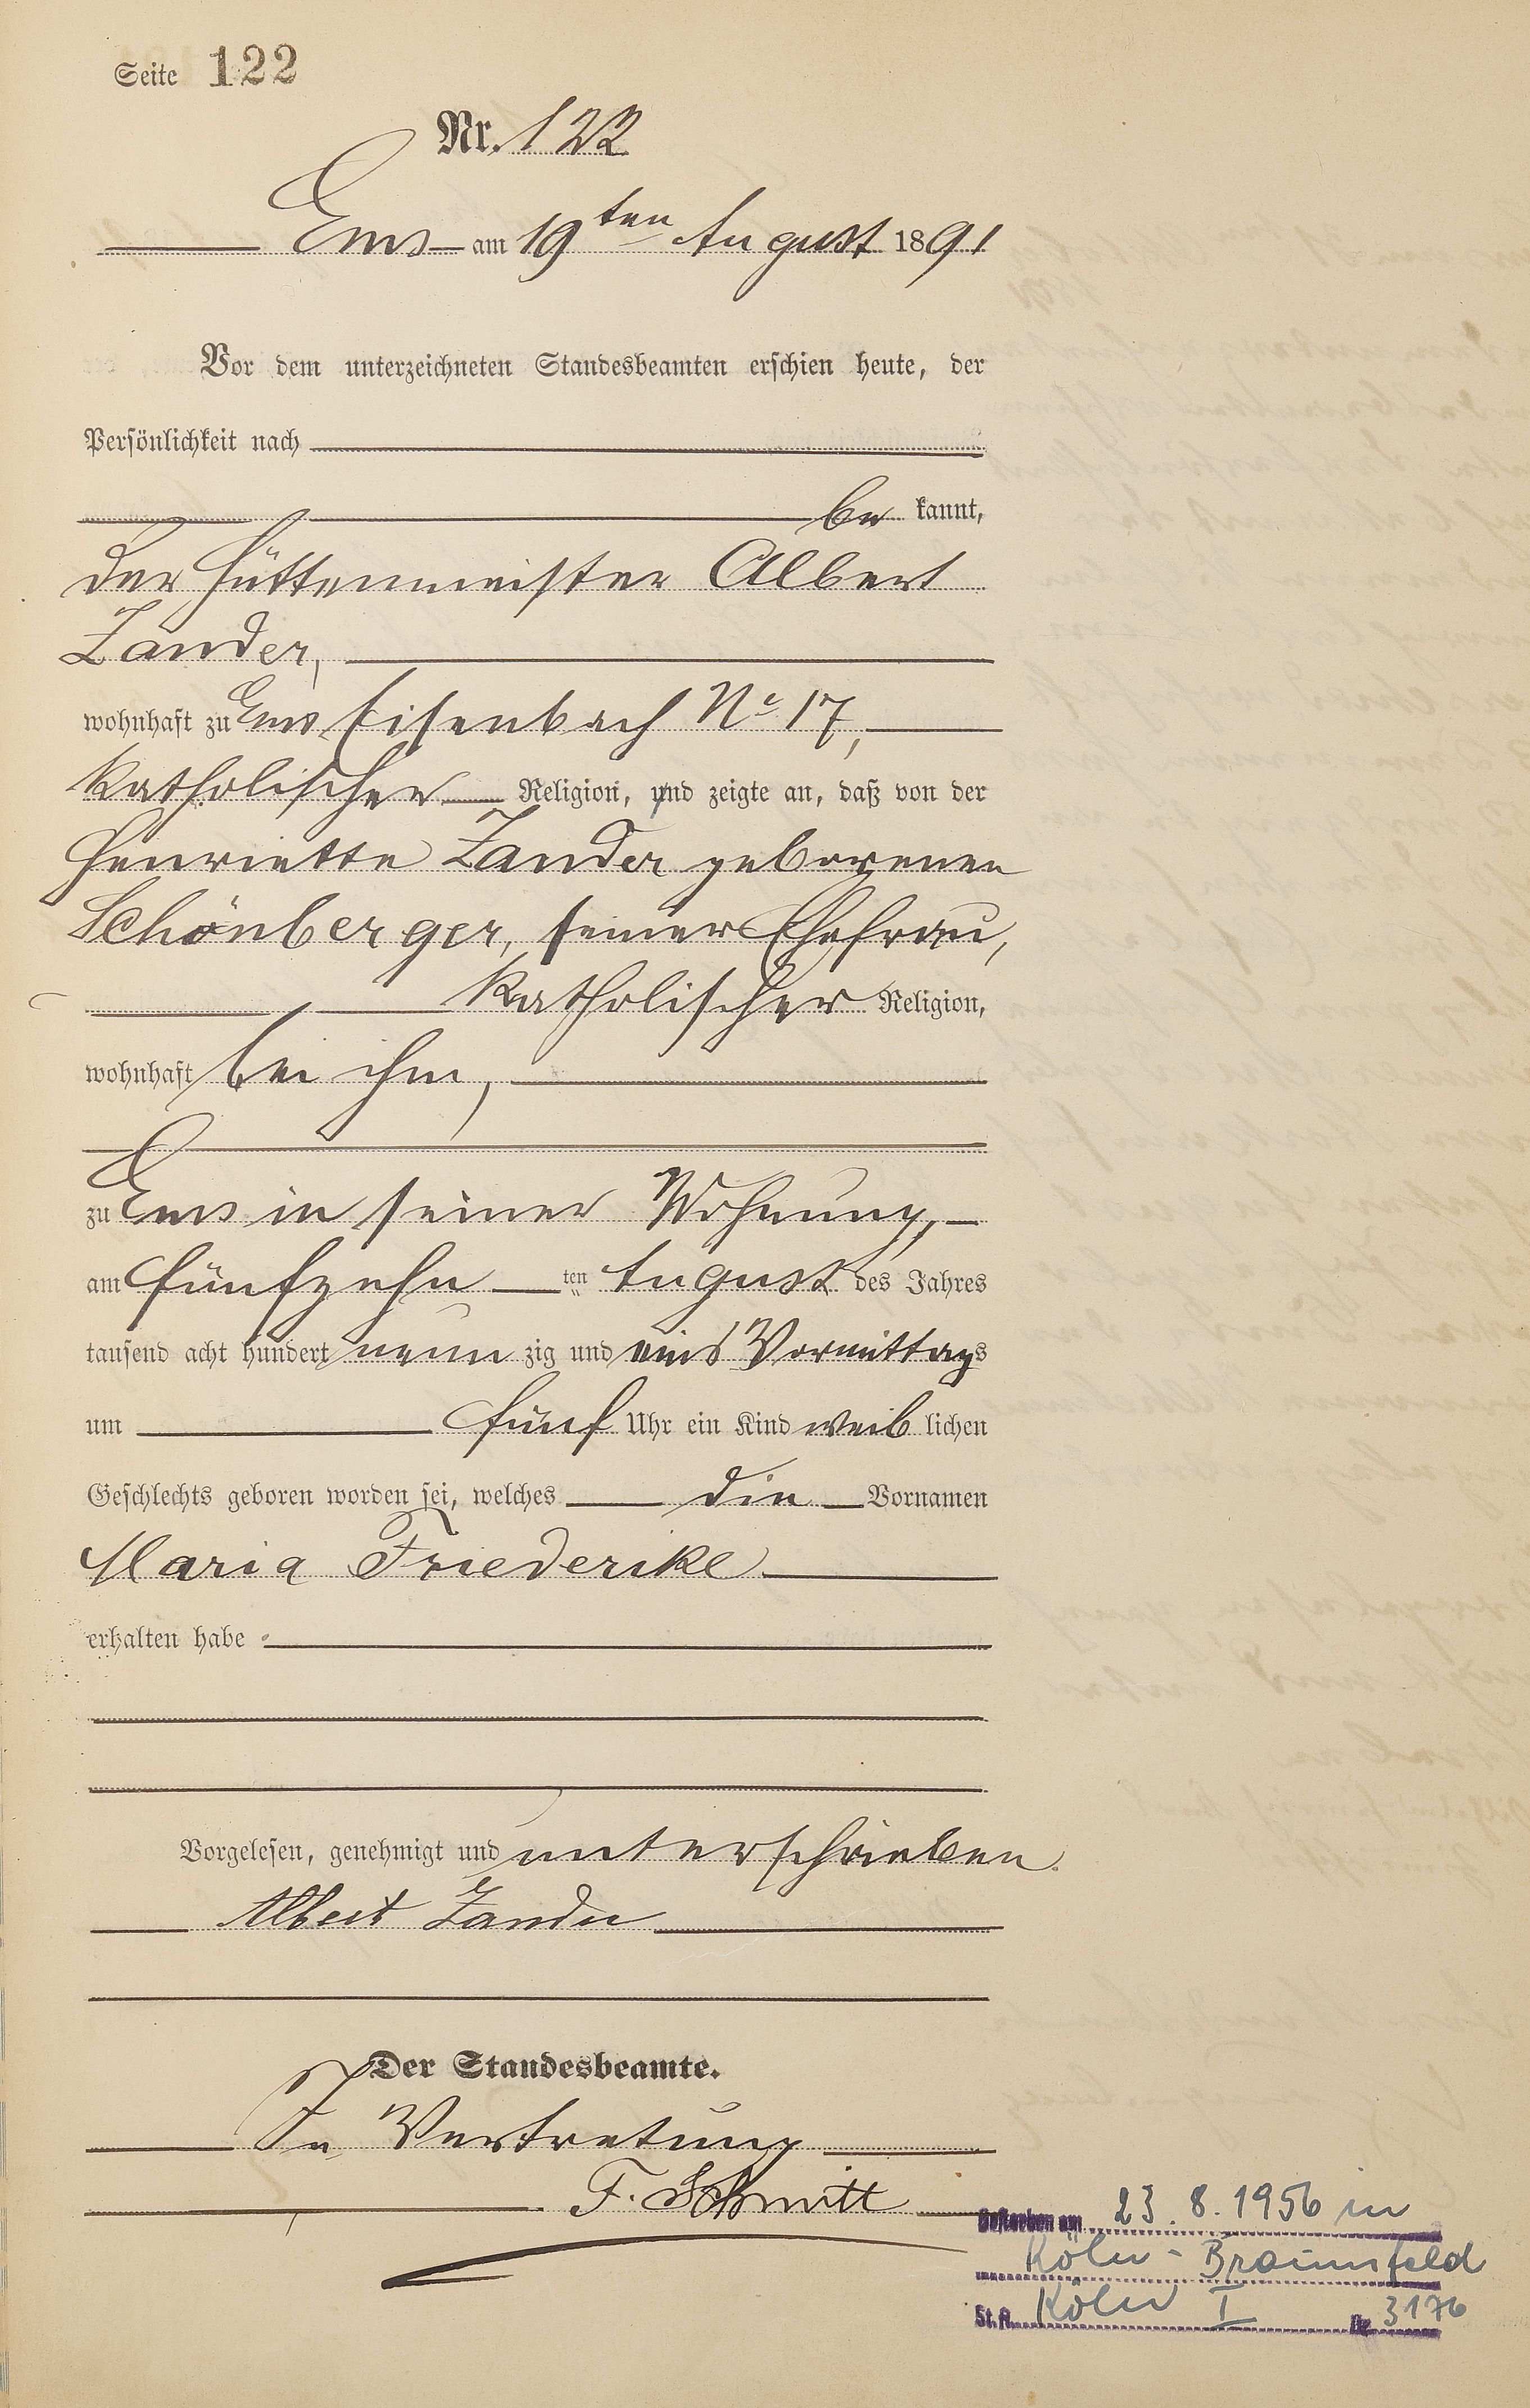 Seite 122
Nr. 122
Ems am 19ten August 1891
Vor dem unterzeichneten Standesbeamten erschien heute, der
Persönlichkeit nach
be kannt,
der Hüttenmeister Albert
Zander,
wohnhaft zu Ems Eisenbach No 17,
katholischer Religion, und zeigte an, daß von der
Henriette Zander geborenen
Schönberger, seiner Ehefrau,
katholischer Religion,
wohnhaft bei ihm,
zu Ems in seiner Wohnung,
am fünfzehn ten August des Jahres
tausend acht hundert neun zig und eins Vormittags
um fünf Uhr ein Kind weib lichen
Geschlechts geboren worden sei, welches die Vornamen
Maria Friederike
erhalten habe
Vorgelesen, genehmigt und unterschrieben.
Albert Zander
Der Standesbeamte.
In Vertretung
F. Schmitt
Gestorben am 23.8.1956 in
Köln-Braunsfeld
St.A. Köln I Nr. 3176